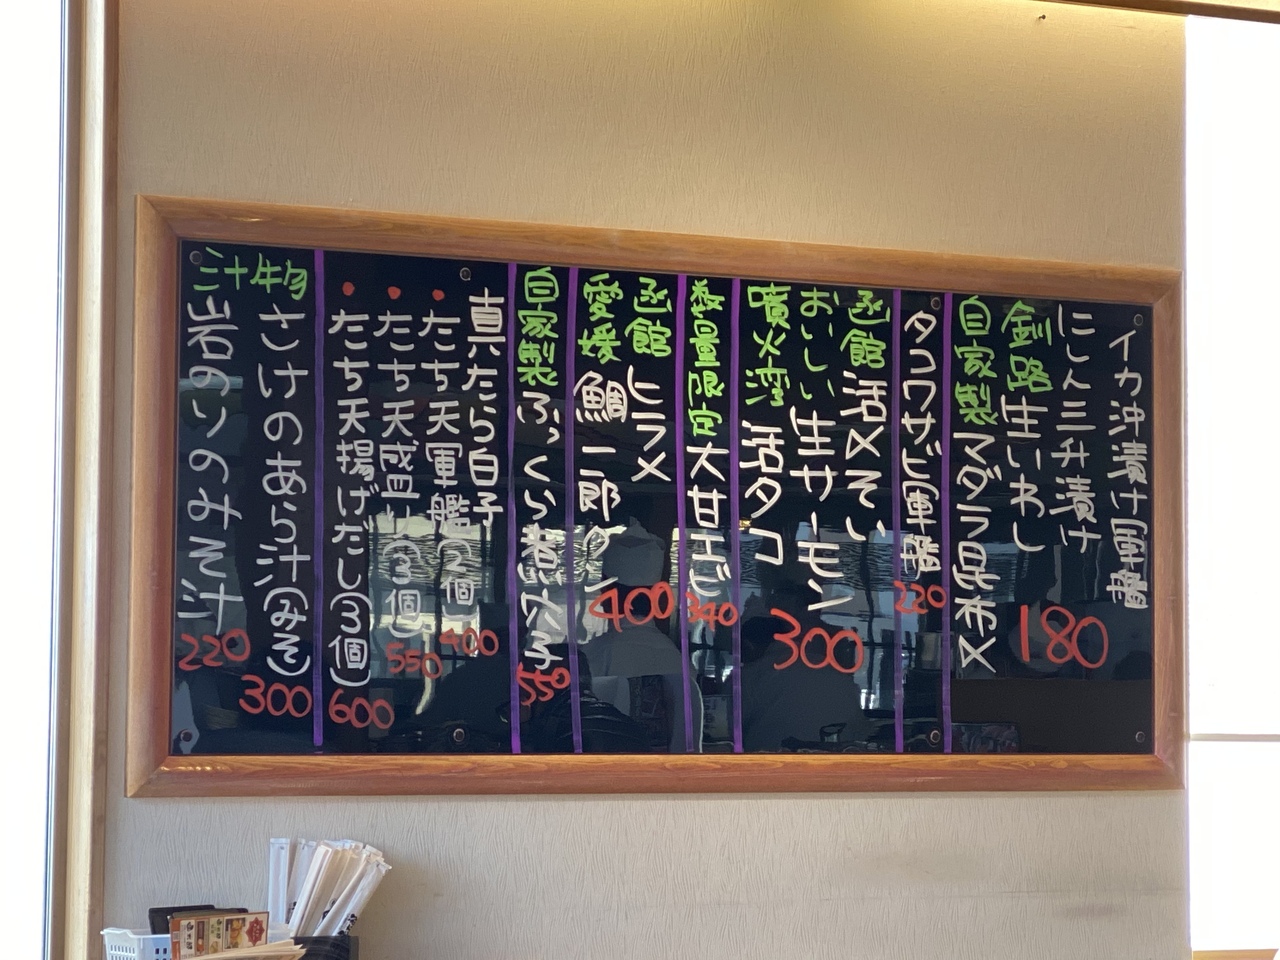 イカ沖漬け軍艦
にしん三升漬け
釧路生いわし
180
自家製マダラ昆布〆
タコワサビ軍艦
220
函館活〆そい
おいしい生サーモン
噴火湾活タコ
300
数量限定大甘エビ
340
函館ヒラメ
愛媛鯛一郎クン
400
自家製ふっくら煮穴子
550
真たら白子
・たち天軍艦(2個)
400
・たち天盛り(3個)
550
・たち天揚げだし(3個)
600
汁物
さけのあら汁(みそ)
300
岩のりのみそ汁
220